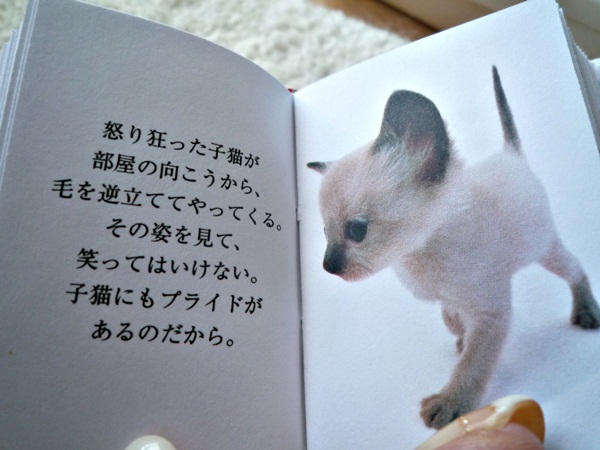 怒り狂った子猫が
部屋の向こうから、
毛を逆立ててやってくる。
その姿を見て、
笑ってはいけない。
子猫にもプライドが
あるのだから。